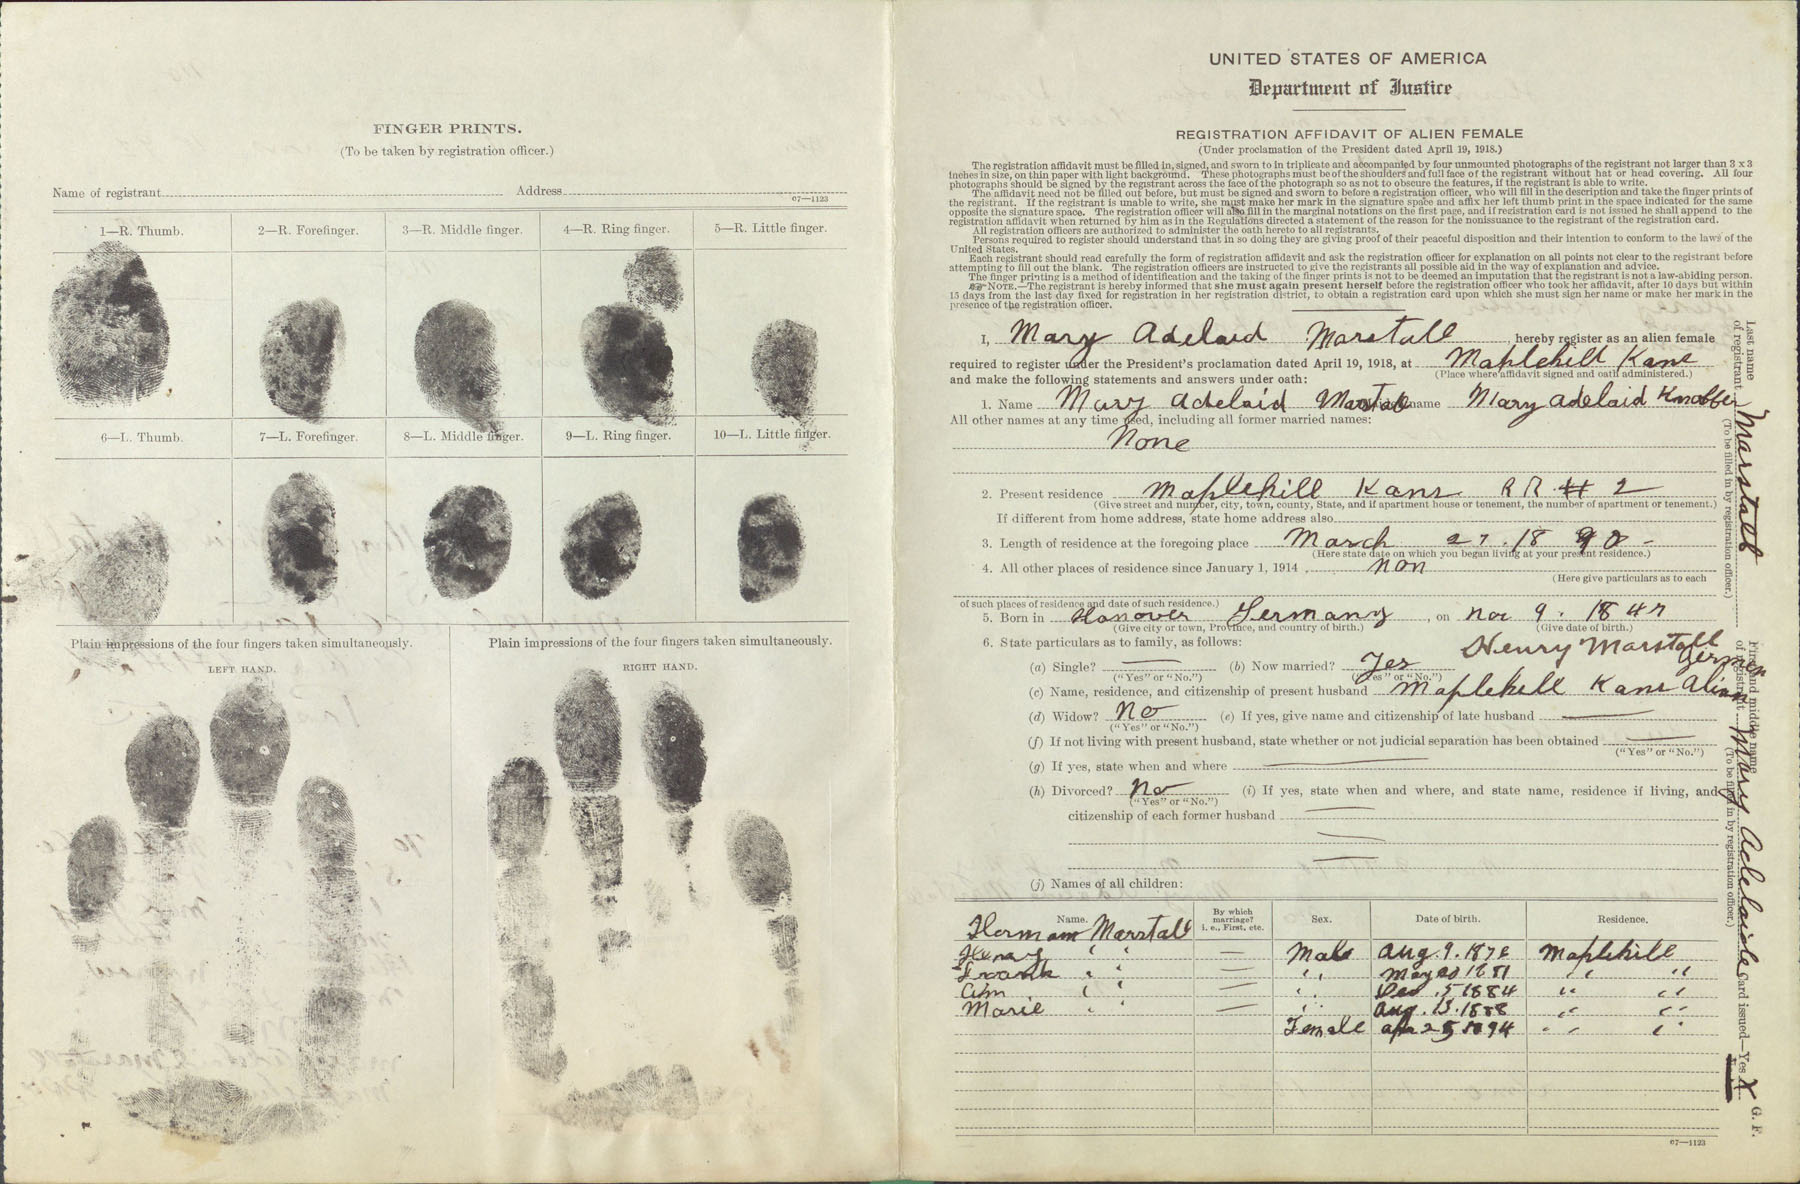 FINGER PRINTS.
(To be taken by registration officer.)
Name of registrant Address
c7—1123
1—R. Thumb. 2—R. Forefinger. 3—R. Middle finger. 4—R. Ring finger. 5—R. Little finger.
6—L. Thumb. 7—L. Forefinger. 8—L. Middle finger. 9—L. Ring finger. 10—L. Little finger.
Plain impressions of the four fingers taken simultaneously. Plain impressions of the four fingers taken simultaneously.
LEFT HAND. RIGHT HAND.
UNITED STATES OF AMERICA
Department of Justice
REGISTRATION AFFIDAVIT OF ALIEN FEMALE
(Under proclamation of the President dated April 19, 1918.)
The registration affidavit must be filled in, signed, and sworn to in triplicate and accompanied by four unmounted photographs of the registrant not larger than 3 x 3
inches in size, on thin paper with light background. These photographs must be of the shoulders and full face of the registrant without hat or head covering. All four
photographs should be signed by the registrant across the face of the photograph so as not to obscure the features, if the registrant is able to write.
The affidavit need not be filled out before, but must be signed and sworn to before a registration officer, who will fill in the description and take the finger prints of
the registrant. If the registrant is unable to write, she must make her mark in the signature space and affix her left thumb print in the space indicated for the same
opposite the signature space. The registration officer will also fill in the marginal notations on the first page, and if registration card is not issued he shall append to the
registration affidavit when returned by him as in the Regulations directed a statement of the reason for the nonissuance to the registrant of the registration card.
All registration officers are authorized to administer the oath hereto to all registrants.
Persons required to register should understand that in so doing they are giving proof of their peaceful disposition and their intention to conform to the laws of the
United States.
Each registrant should read carefully the form of registration affidavit and ask the registration officer for explanation on all points not clear to the registrant before
attempting to fill out the blank. The registration officers are instructed to give the registrants all possible aid in the way of explanation and advice.
The finger printing is a method of identification and the taking of the finger prints is not to be deemed an imputation that the registrant is not a law-abiding person.
NOTE.—The registrant is hereby informed that she must again present herself before the registration officer who took her affidavit, after 10 days but within
15 days from the last day fixed for registration in her registration district, to obtain a registration card upon which she must sign her name or make her mark in the
presence of the registration officer.
I, Mary Adelaid Marstall, hereby register as an alien female
required to register under the President's proclamation dated April 19, 1918, at Maplehill Kans
(Place where affidavit signed and oath administered.)
and make the following statements and answers under oath:
1. Name Mary Adelaid Marstall name Mary Adelaid Knobber
All other names at any time used, including all former married names:
None
2. Present residence Maplehill Kans RR # 2
(Give street and number, city, town, county, State, and if apartment house or tenement, the number of apartment or tenement.)
If different from home address, state home address also
3. Length of residence at the foregoing place March 27. 18 90 -
(Here state date on which you began living at your present residence.)
4. All other places of residence since January 1, 1914 non
(Here give particulars as to each
of such places of residence and date of such residence.)
5. Born in Hanover Germany, on nov 9. 1847
(Give city or town, Province, and country of birth.) (Give date of birth.)
6. State particulars as to family, as follows: Henry Marstall
German
(a) Single? — (b) Now married? Yes
("Yes" or "No.") ("Yes" or "No.")
(c) Name, residence, and citizenship of present husband Maplehill Kans Alian
(d) Widow? No (e) If yes, give name and citizenship of late husband —
("Yes" or "No.")
(f) If not living with present husband, state whether or not judicial separation has been obtained —
("Yes" or "No.")
(g) If yes, state when and where —
(h) Divorced? No (i) If yes, state when and where, and state name, residence if living, and
("Yes" or "No.")
citizenship of each former husband —
(j) Names of all children:
Name. By which marriage? i. e., First, etc. Sex. Date of birth. Residence.
Herman Marstall
Henry " " — Male Aug. 9. 1878 Maplehill
Frank " " — " " May 20 1881 " "
Wm " " — " " Dec. 5 1884 " "
Marie " " — " " Aug. 13. 1888 " "
Female apr 25 1894 " "
c7—1123
Last name of registrant Marstall
(To be filled in by registration officer.)
First and middle name of registrant Mary Adelaide
(To be filled in by registration officer.)
Card issued—Yes X
G. F.